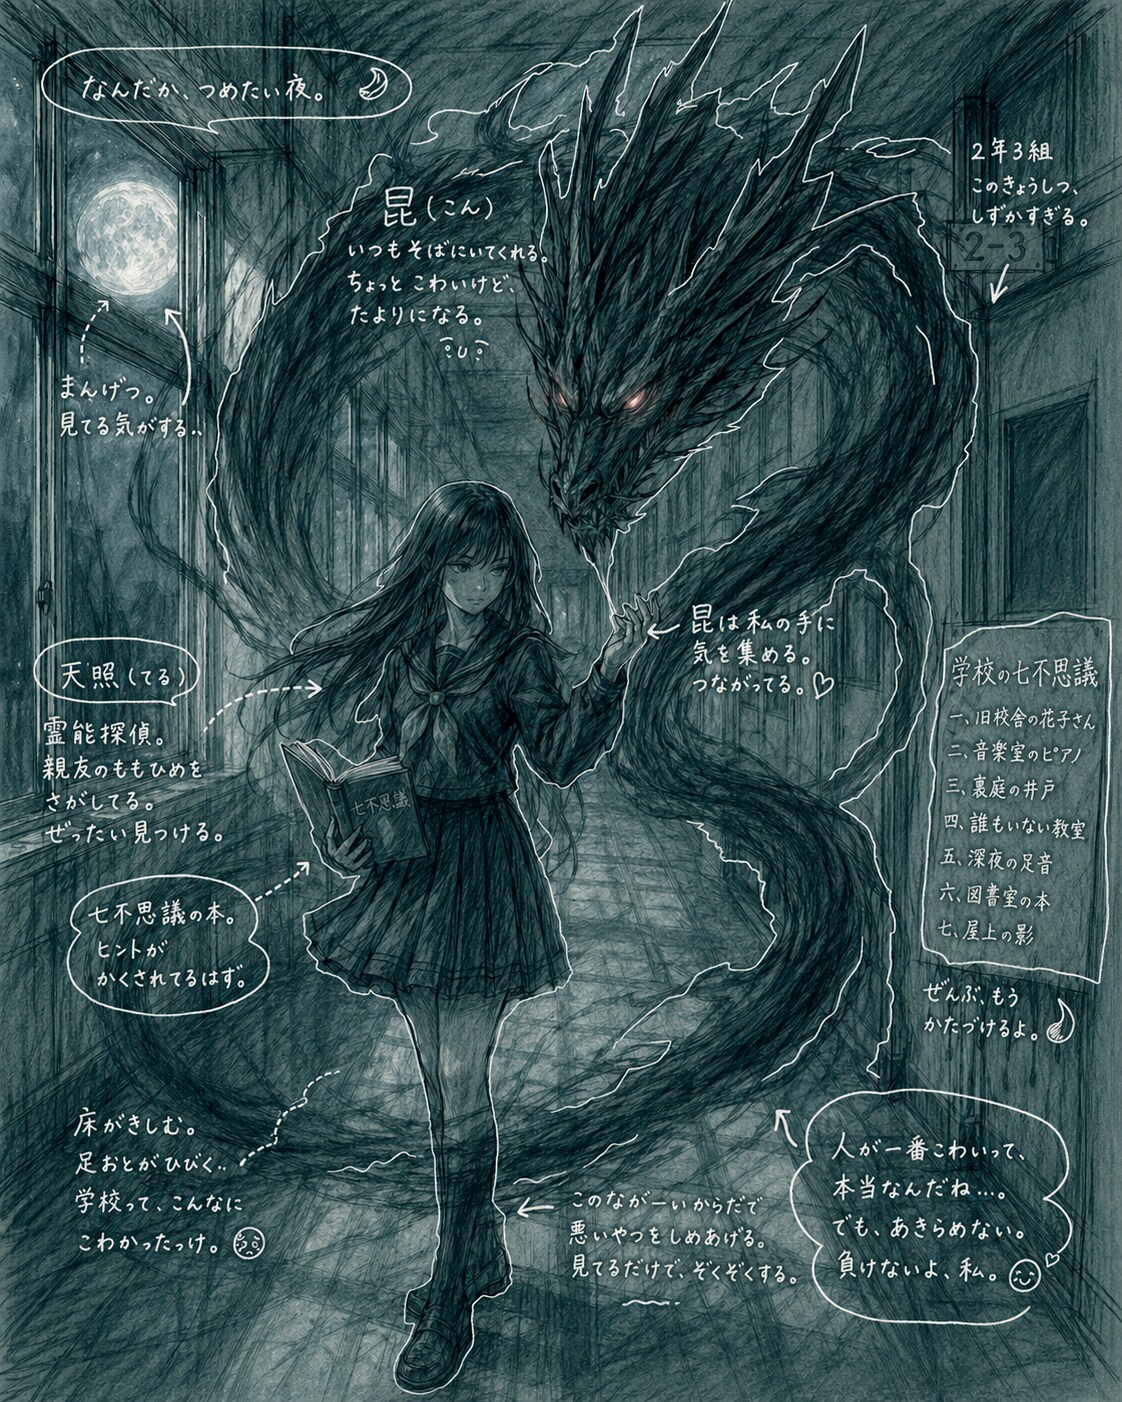 なんだか、つめたい夜。
昆（こん）
いつもそばにいてくれる。
ちょっと こわいけど、
たよりになる。
2年3組
このきょうしつ、
しずかすぎる。
2-3
まんげつ。
見てる気がする..
昆は私の手に
気を集める。
つながってる。
天照（てる）
霊能探偵。
親友のももひめを
さがしてる。
ぜったい見つける。
七不思議
七不思議の本。
ヒントが
かくされてるはず。
学校の七不思議
一、旧校舎の花子さん
二、音楽室のピアノ
三、裏庭の井戸
四、誰もいない教室
五、深夜の足音
六、図書室の本
七、屋上の影
ぜんぶ、もう
かたづけるよ。
床がきしむ。
足おとがひびく..
学校って、こんなに
こわかったっけ。
このながーいからだで
悪いやつをしめあげる。
見てるだけで、ぞくぞくする。
人が一番こわいって、
本当なんだね…。
でも、あきらめない。
負けないよ、私。